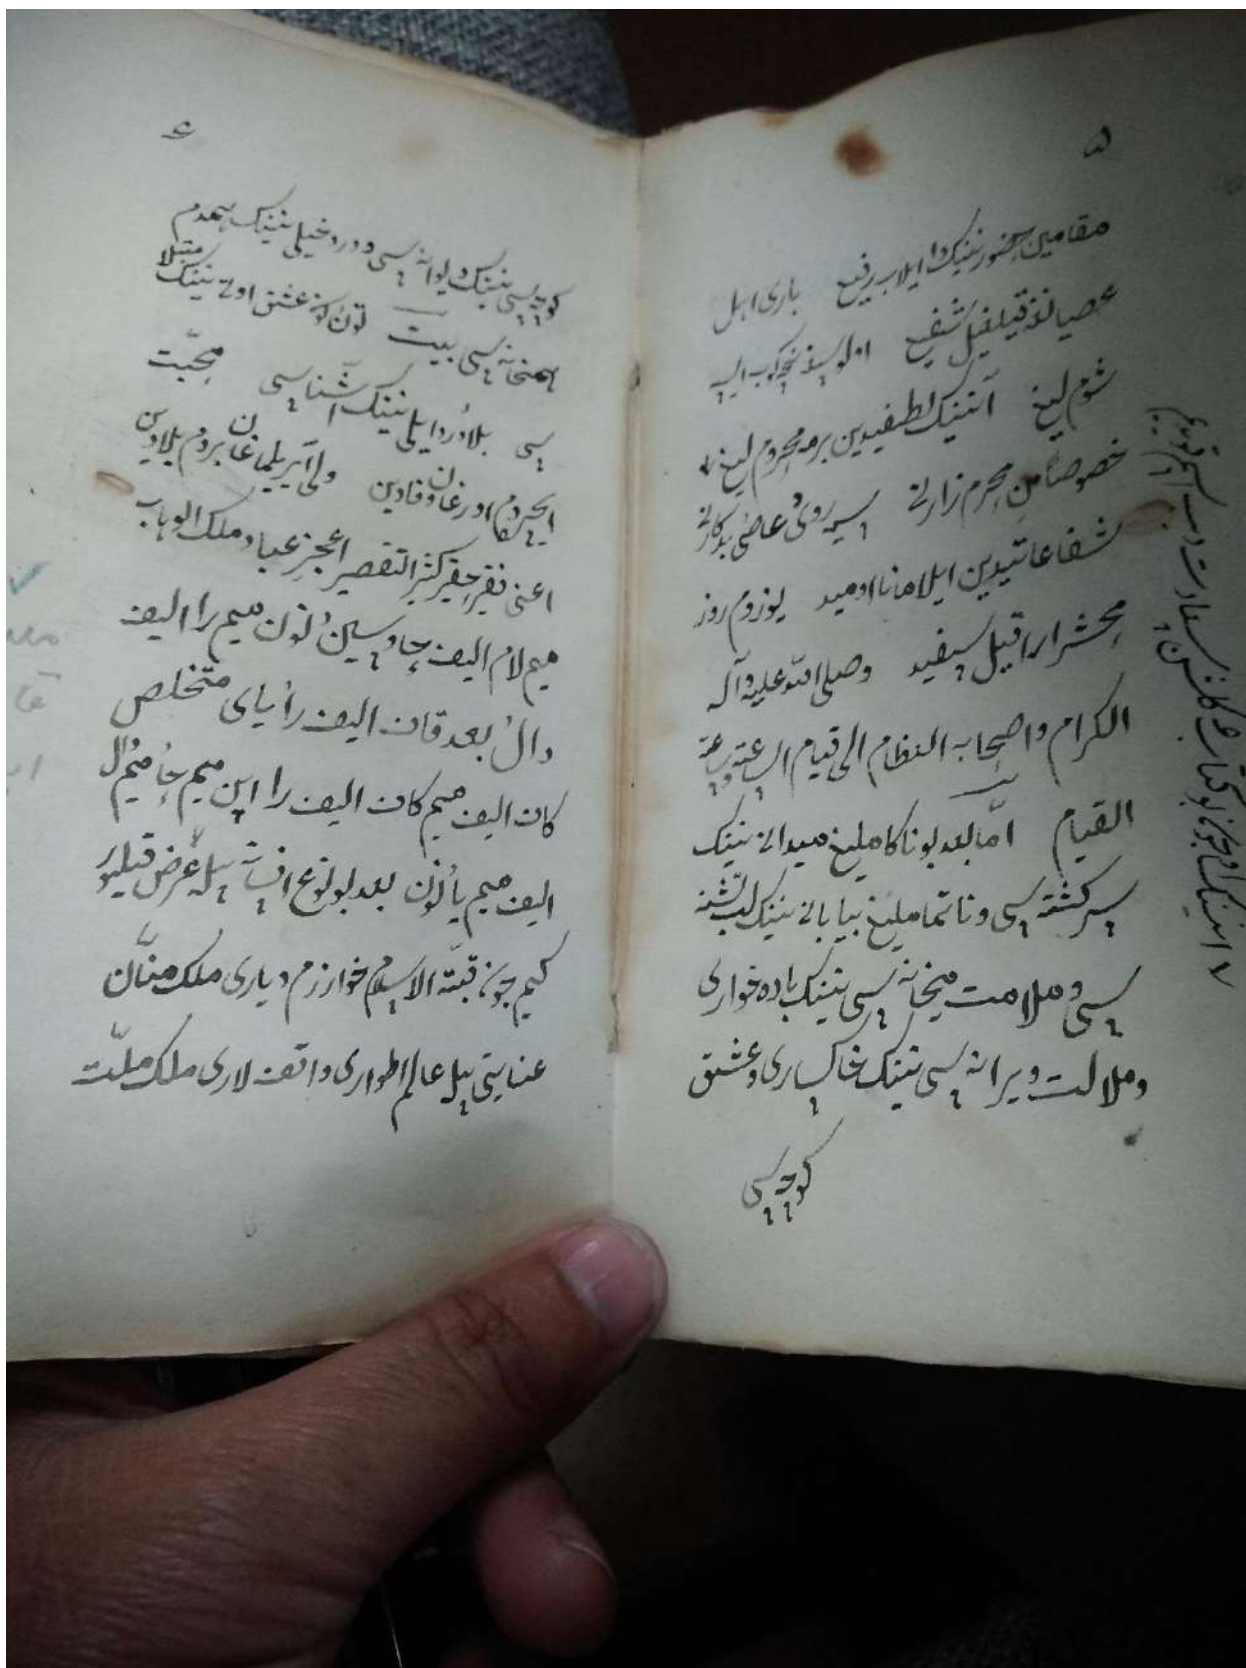 ۵
مقامین حضورینکدا ایلاب رفیع باری اهل
عصیانغه قیلغیل شفیع اولوسغه نچوک ایسه
شوم لیغ آنینک لطفیدین برمه محروم لیغ
خصوصاً من مجرم زارنی سیه روی عاصی بدکارنی
شفاعاتیدین ایلاما ناامید یوزوم روز
محشر ارا قیل سفید وصلی الله علیه وآله
الکرام واصحابه العظام الی قیام الساعة وساعة
القیام امّا بعد بو ناکاملیغ میدانی نینک
سرکشته سی و ناتماملیغ بیابانی نینک لب تشنه
سی و ملامت میخانه سی نینک باده خواری
و ملالت ویرانه سی نینک خاکساری و عشق
کوچه سی
۶
کوچه سی نینک دیوانه سی و درد خیلی نینک همدم
همخانه سی بیت تون کون عشق اوتی نینک مبتلا
سی بلا و درد ایلی نینک آشناسی محبّت
وفادین ولی آیریلماغان بردم بلادین
اعنی فقیر حقیر کثیر التقصیر اعجز عباد ملک الوهاب
میم لام الیف حا و سین نون میم را الیف
دال بعد قاف الیف را یای متخلص
کاف الیف میم کاف الیف را ابن میم حا میم دال
الیف میم یا نون بعد بو نوع افسانه بیله عرض قیلور
کیم چون قبّة الاسلام خوارزم دیاری ملک منّان
عنایتی بیله عالم اطواری واقف لاری ملک ملّت